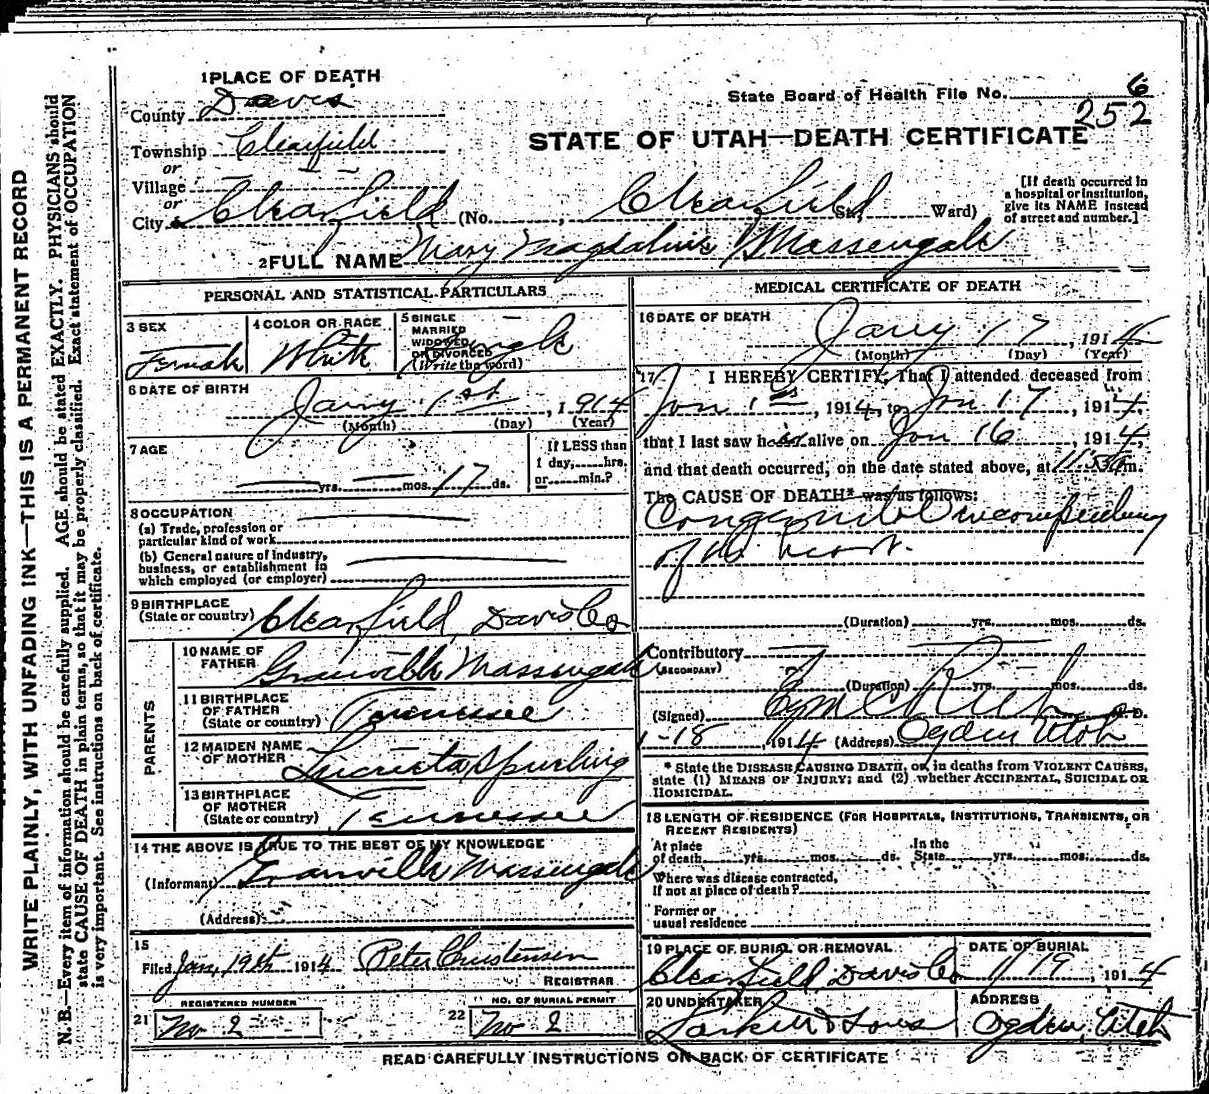 WRITE PLAINLY, WITH UNFADING INK—THIS IS A PERMANENT RECORD
N. B.—Every item of information should be carefully supplied. AGE should be stated EXACTLY. PHYSICIANS should
state CAUSE OF DEATH in plain terms, so that it may be properly classified. Exact statement of OCCUPATION
is very important. See instructions on back of certificate.
1 PLACE OF DEATH
County Davis
Township Clearfield
or
Village
or
City Clearfield (No. , Clearfield St. Ward)
State Board of Health File No. 6
252
STATE OF UTAH—DEATH CERTIFICATE
[If death occurred in
a hospital or institution,
give its NAME instead
of street and number.]
2 FULL NAME Mary Magdaline Massengale
PERSONAL AND STATISTICAL PARTICULARS
3 SEX
Female
4 COLOR OR RACE
White
5 SINGLE
MARRIED
WIDOWED
OR DIVORCED
(Write the word)
Single
6 DATE OF BIRTH
Jany 1st, 1914
(Month) (Day) (Year)
7 AGE
yrs. mos. 17 ds.
If LESS than
1 day, hrs.
or min.?
8 OCCUPATION
(a) Trade, profession or
particular kind of work
(b) General nature of industry,
business, or establishment in
which employed (or employer)
9 BIRTHPLACE
(State or country) Clearfield, Davis Co
PARENTS
10 NAME OF
FATHER Granville Massengale
11 BIRTHPLACE
OF FATHER
(State or country) Tennessee
12 MAIDEN NAME
OF MOTHER Lucrieta Spurling
13 BIRTHPLACE
OF MOTHER
(State or country) Tennessee
14 THE ABOVE IS TRUE TO THE BEST OF MY KNOWLEDGE
(Informant) Granville Massengale
(Address)
15
Filed Jan. 19th 1914 Peter Christensen
REGISTRAR
REGISTERED NUMBER
21 No 2
NO. OF BURIAL PERMIT
22 No 2
MEDICAL CERTIFICATE OF DEATH
16 DATE OF DEATH
Jany 17, 1914
(Month) (Day) (Year)
17 I HEREBY CERTIFY, That I attended deceased from
Jan 1st, 1914, to Jan 17, 1914,
that I last saw h alive on Jan 16, 1914,
and that death occurred, on the date stated above, at m.
The CAUSE OF DEATH* was as follows:
Congenital incompetency
of the heart.
(Duration) yrs. mos. ds.
Contributory
(SECONDARY)
(Duration) yrs. mos. ds.
(Signed) Rich M.D.
1-18, 1914 (Address) Ogden Utah
* State the DISEASE CAUSING DEATH, or, in deaths from VIOLENT CAUSES,
state (1) MEANS OF INJURY; and (2) whether ACCIDENTAL, SUICIDAL OR
HOMICIDAL.
18 LENGTH OF RESIDENCE (FOR HOSPITALS, INSTITUTIONS, TRANSIENTS, OR
RECENT RESIDENTS)
At place
of death yrs. mos. ds.
In the
State yrs. mos. ds.
Where was disease contracted,
if not at place of death?
Former or
usual residence
19 PLACE OF BURIAL OR REMOVAL
Clearfield, Davis Co
DATE OF BURIAL
1/19, 1914
20 UNDERTAKER
Larkin & Sons
ADDRESS
Ogden, Utah
READ CAREFULLY INSTRUCTIONS ON BACK OF CERTIFICATE